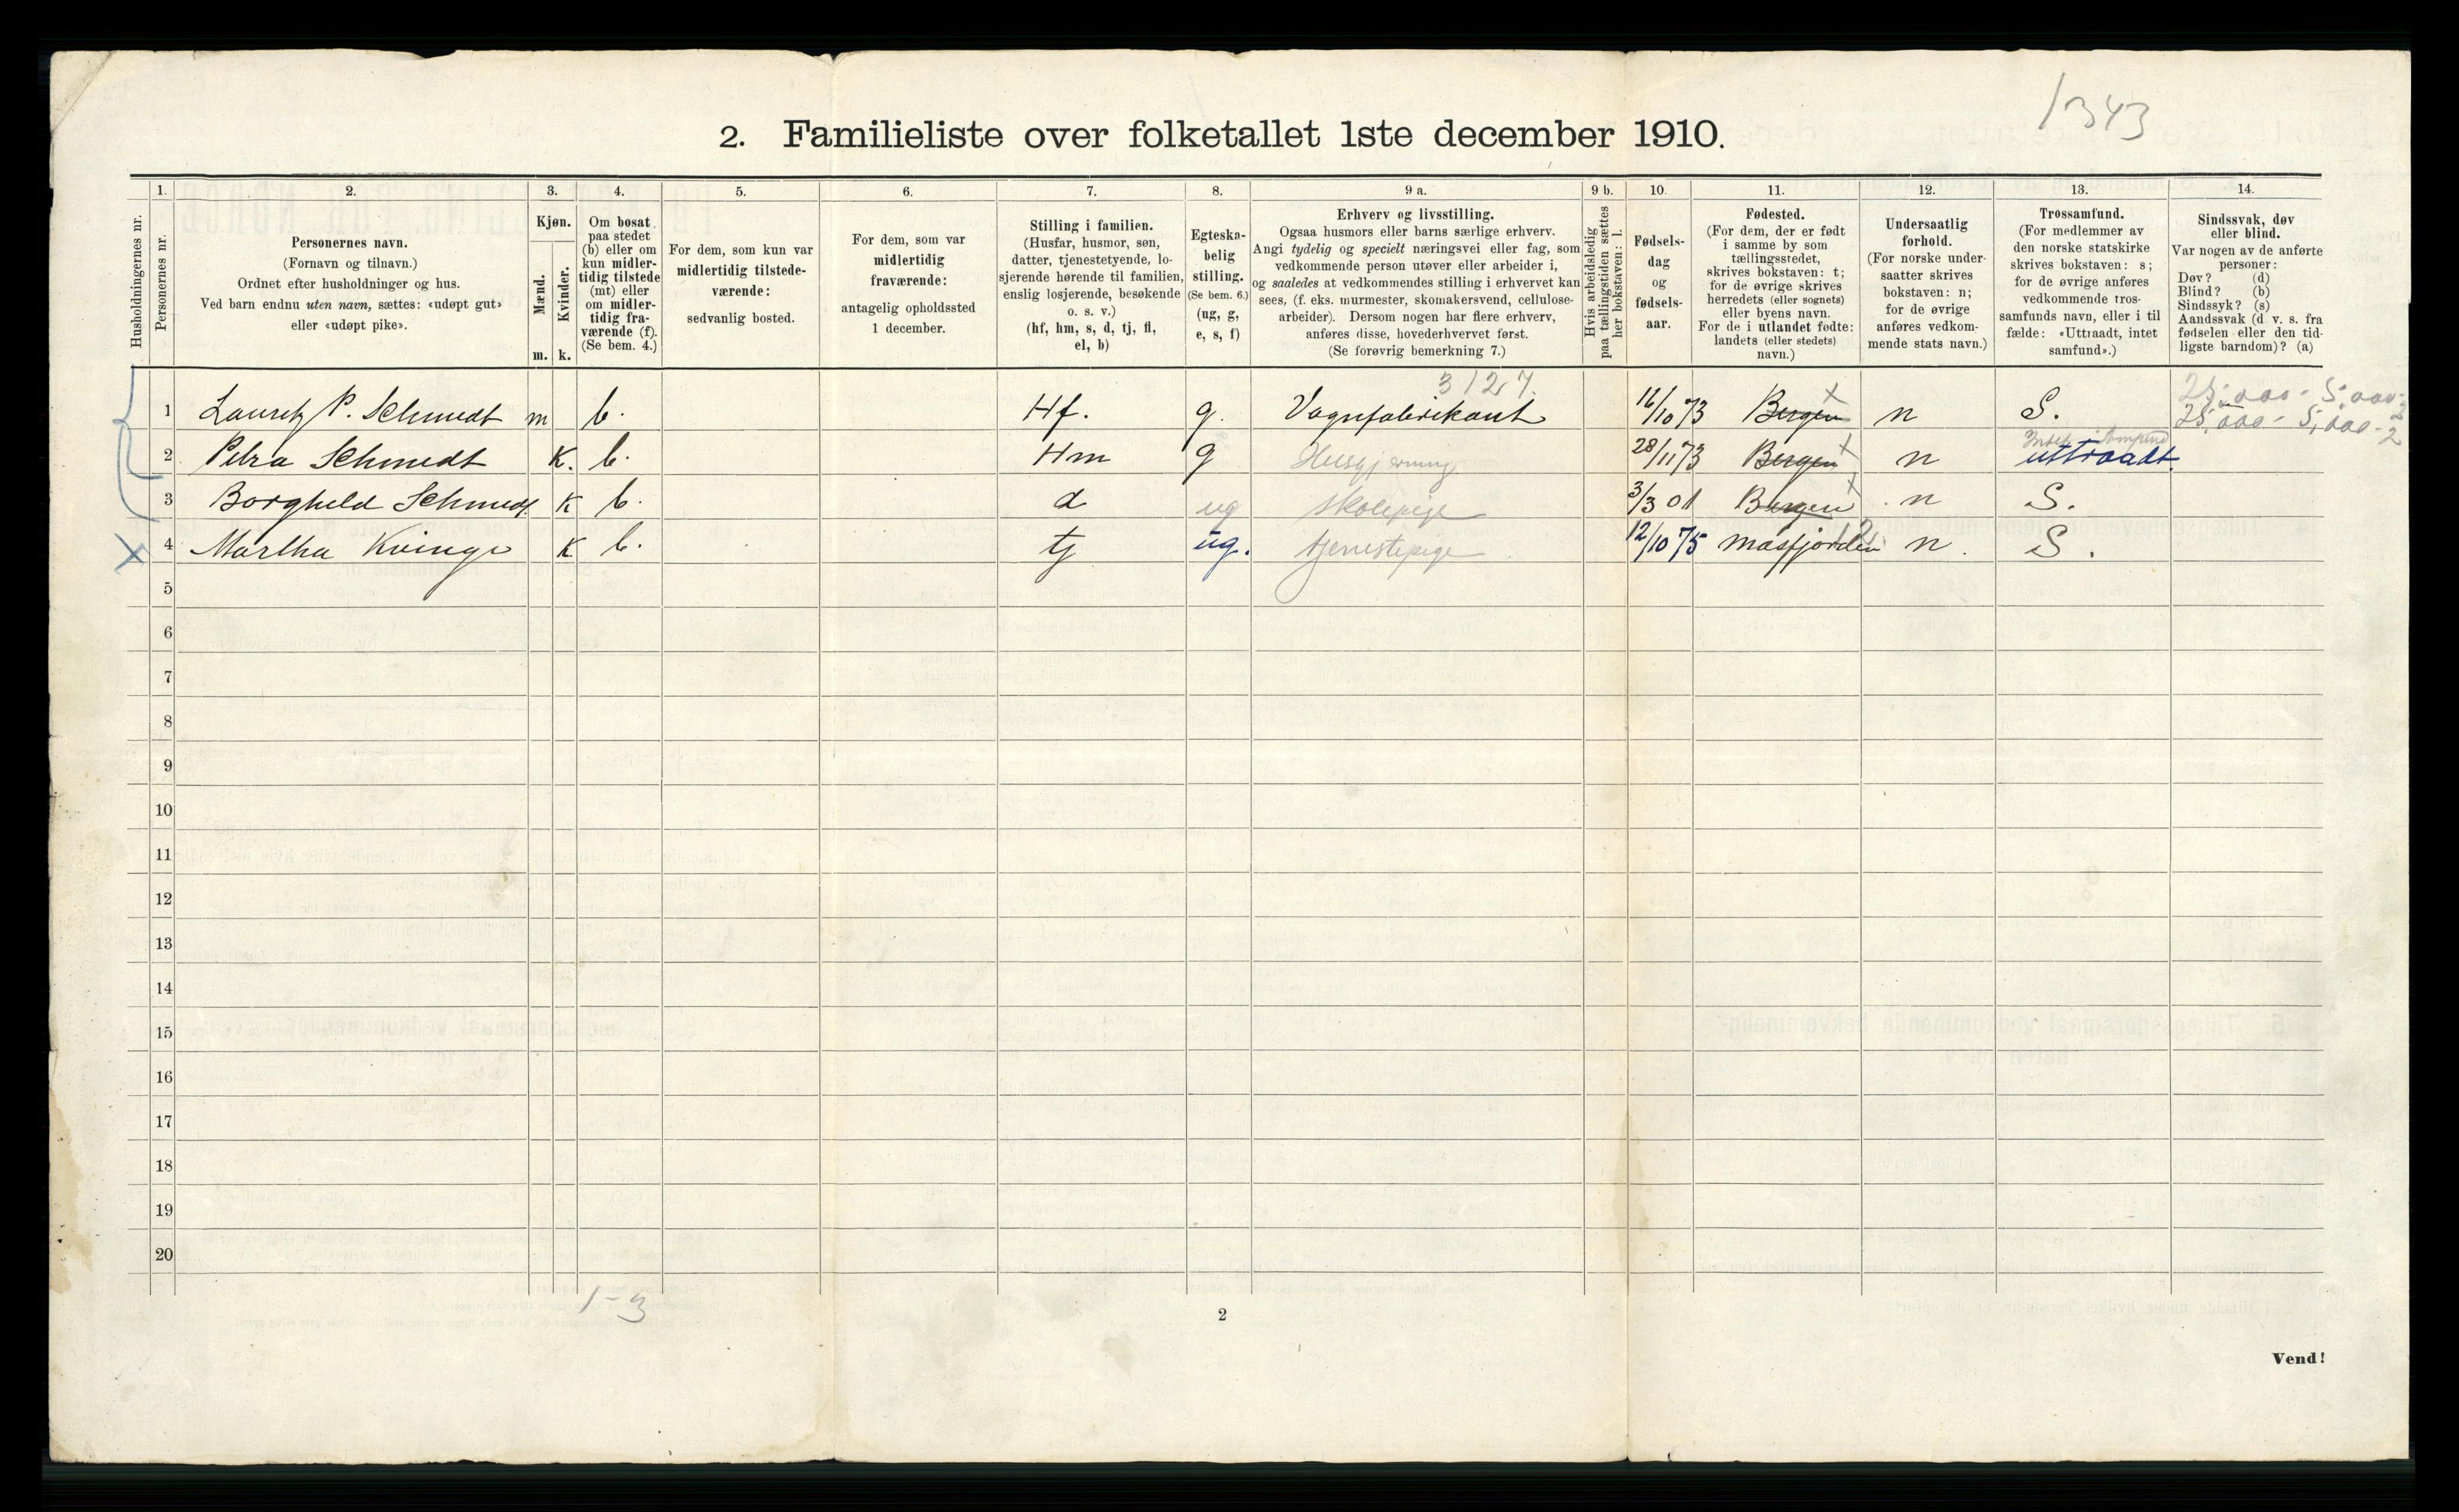 1343
2. Familieliste over folketallet 1ste december 1910.
1. 2. 3. 4. 5. 6. 7. 8. 9 a. 9 b. 10. 11. 12. 13. 14.
Husholdningernes nr.
Personernes nr.
Personernes navn.
(Fornavn og tilnavn.)
Ordnet efter husholdninger og hus.
Ved barn endnu uten navn, sættes: «udøpt gut»
eller «udøpt pike».
Kjøn.
Mænd.
Kvinder.
m. k.
Om bosat
paa stedet
(b) eller om
kun midler-
tidig tilstede
(mt) eller
om midler-
tidig fra-
værende (f).
(Se bem. 4.)
For dem, som kun var
midlertidig tilstede-
værende:
sedvanlig bosted.
For dem, som var
midlertidig
fraværende:
antagelig opholdssted
1 december.
Stilling i familien.
(Husfar, husmor, søn,
datter, tjenestetyende, lo-
sjerende hørende til familien,
enslig losjerende, besøkende
o. s. v.)
(hf, hm, s, d, tj, fl,
el, b)
Egteska-
belig
stilling.
(Se bem. 6.)
(ug, g,
e, s, f)
Erhverv og livsstilling.
Ogsaa husmors eller barns særlige erhverv.
Angi tydelig og specielt næringsvei eller fag, som
vedkommende person utøver eller arbeider i,
og saaledes at vedkommendes stilling i erhvervet kan
sees, (f. eks. murmester, skomakersvend, cellulose-
arbeider). Dersom nogen har flere erhverv,
anføres disse, hovederhvervet først.
(Se forøvrig bemerkning 7.)
Hvis arbeidsledig
paa tællingstiden sættes
her bokstaven: l.
Fødsels-
dag
og
fødsels-
aar.
Fødested.
(For dem, der er født
i samme by som
tællingsstedet,
skrives bokstaven: t;
for de øvrige skrives
herredets (eller sognets)
eller byens navn.
For de i utlandet fødte:
landets (eller stedets)
navn.)
Undersaatlig
forhold.
(For norske under-
saatter skrives
bokstaven: n;
for de øvrige
anføres vedkom-
mende stats navn.)
Trossamfund.
(For medlemmer av
den norske statskirke
skrives bokstaven: s;
for de øvrige anføres
vedkommende tros-
samfunds navn, eller i til
fælde: «Uttraadt, intet
samfund».)
Sindssvak, døv
eller blind.
Var nogen av de anførte
personer:
Døv? (d)
Blind? (b)
Sindssyk? (s)
Aandssvak (d. v. s. fra
fødselen eller den tid-
ligste barndom)? (a)
3127. 25,000 - 5,000 - 2
1 Lauretz P. Schmedt m b. Hf. g. Vognfabrikant 16/10 73 Bergen x n S. 25,000 - 5,000 - 2
Intet Samfund
2 Petra Schmedt K. b. Hm g Husgjerning 28/11 73 Bergen x n uttraadt
3 Borghild Schmedt K b. d ug skolepige 3/3 01 Bergen x n S.
x 4 Martha Kvinge K b. tj ug. tjenestepige 12/10 75 Masfjorden 12. n. S.
5
6
7
8
9
10
11
12
13
14
15
16
17
18
19
20
1-3
2
Vend!